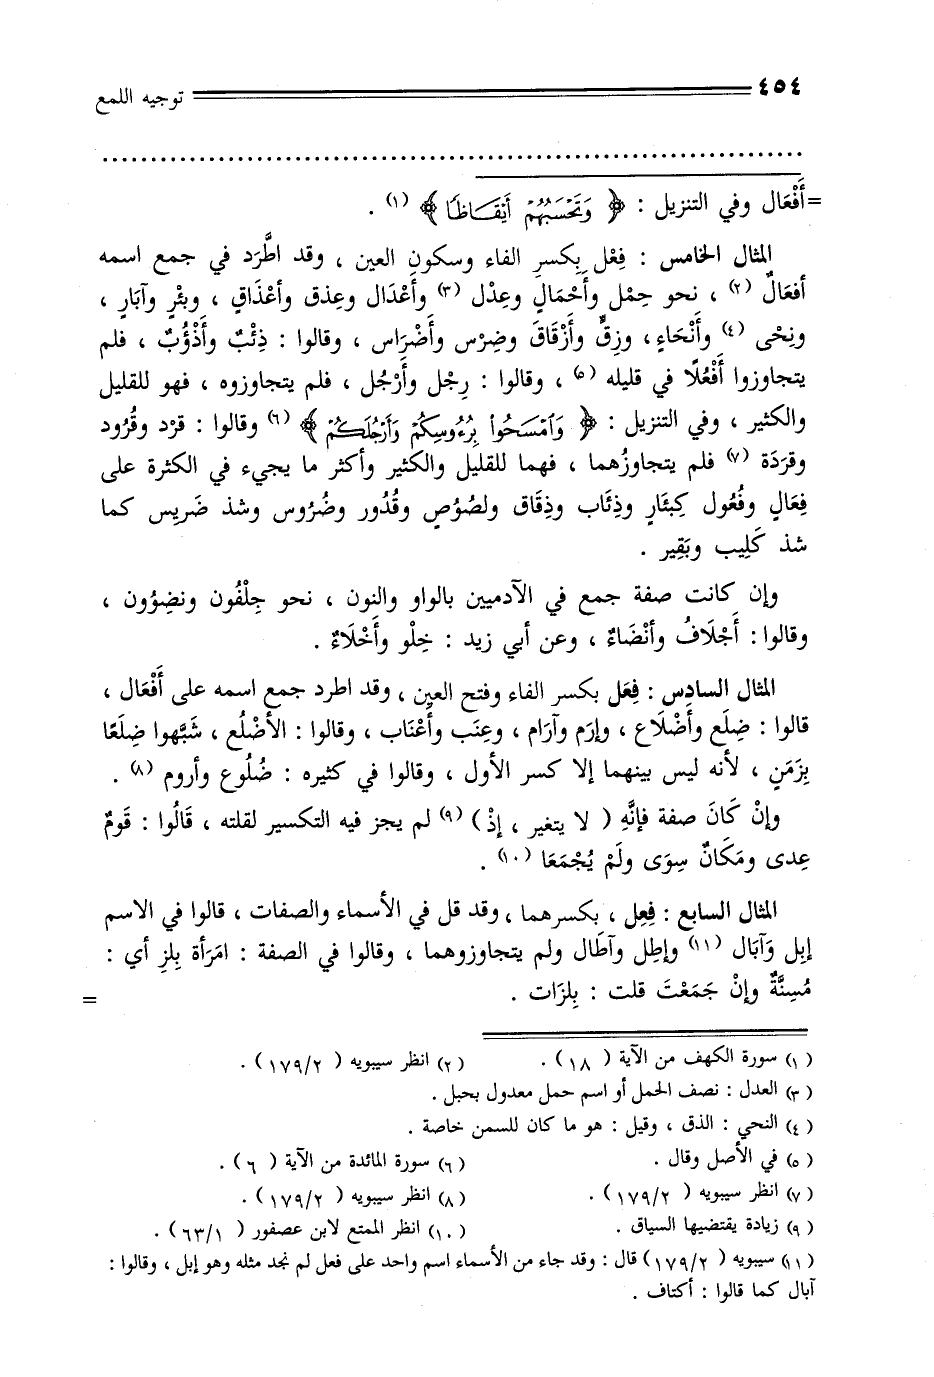 ٤٥٤ توجيه اللمع
................................................................................
=أَفْعَال وفي التنزيل : ﴿ وَتَحْسَبُهُمْ أَيْقَاظًا ﴾ (١) .
المثال الخامس : فِعْل بِكسرِ الفاء وسكونِ العين ، وقد اطَّرَد في جمع اسمه
أفعَالٌ (٢) ، نحو حِمْل وأَحْمَالٍ وعِدْل (٣) وأَعْدَال وعِذق وأعْذَاقٍ ، وبئْرٍ وآبَارٍ ،
ونِحْى (٤) وأَنْحَاءٍ، وزِقٍّ وأَزْقَاقَ وضِرْس وأَضْرَاس ، وقالوا : ذِئْبٌ وأَذْؤُبٌ ، فلم
يتجاوزوا أَفْعُلًا في قليله (٥) ، وقالوا : رِجْل وأَرْجُل ، فلم يتجاوزوه ، فهو للقليل
والكثير ، وفي التنزيل : ﴿ وَامْسَحُوا بِرُءُوسِكُمْ وَأَرْجُلَكُمْ ﴾ (٦) وقالوا : قرْد وقُرُود
وقرَدَة (٧) فلم يتجاوزُهما ، فهما للقليل والكثير وأكثر ما يجيء في الكثرة على
فِعَالٍ وفُعُول كَبِئَارٍ وذِئَاب وذِقَاق ولصُوُصٍ وقُدُور وضُرُوس وشذ ضَرِيس كما
شذ كَلِيب وبَقِير .
وإن كانت صفة جمع في الآدميين بالواو والنون ، نحو جِلْفُون ونضِوُون ،
وقالوا : أَجْلَافُ وأنْضَاءٌ ، وعن أبي زيد : خِلْو وأَخْلَاءٌ .
المثال السادس : فِعَل بكسر الفاء وفتح العين ، وقد اطرد جمع اسمه على أَفْعَال ،
قالوا : ضِلَع وأَضْلَاع ، وإرَم وآرَام ، وعِنَب وأَعْنَاب ، وقالوا : الأضْلُع ، شَبَّهوا ضِلَعًا
بِزَمَنٍ ، لأنه ليس بينهما إلا كسر الأول ، وقالوا في كثيره : ضُلُوع وأروم (٨) .
وإنْ كَانَ صفة فإنَّهِ ( لا يتغير ، إذْ ) (٩) لم يجز فيه التكسير لقلته ، قَالُوا : قَومٌ
عِدى ومَكَانٌ سِوَى ولَمْ يُجْمَعَا (١٠) .
المثال السابع : فِعِل ، بكسرهما ، وقد قل في الأسماء والصفات ، قالوا في الاسم
إبِل وَآبَال (١١) وإطِل وآطَال ولم يتجاوزوهما ، وقالوا في الصفة : امَرَأة بِلِز أي :
مُسِنَّةٌ وإنْ جَمَعْتَ قلت : بِلزَات .
=
(١) سورة الكهف من الآية ( ١٨ ) . (٢) انظر سيبويه ( ١٧٩/٢ ) .
(٣) العدل : نصف الحمل أو اسم حمل معدول بحبل .
(٤) النحي : الذق ، وقيل : هو ما كان للسمن خاصة .
(٥) في الأصل وقال . (٦) سورة المائدة من الآية ( ٦ ) .
(٧) انظر سيبويه ( ١٧٩/٢ ) . (٨) انظر سيبويه ( ١٧٩/٢ ) .
(٩) زيادة يقتضيها السياق . (١٠) انظر الممتع لابن عصفور ( ٦٣/١ ) .
(١١) سيبويه ( ١٧٩/٢ ) قال : وقد جاء من الأسماء اسم واحد على فعل لم نجد مثله وهو إبل ، وقالوا :
آبال كما قالوا : أكتاف .